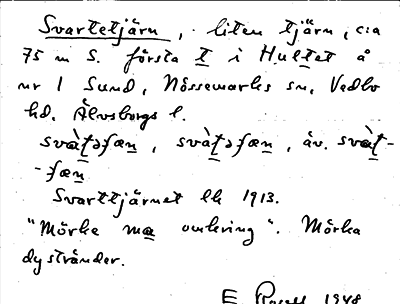 Svartetjärn, liten tjärn, c:a
75 m S. första t i Hultet å
nr 1 Sund, Nössemarks sn, Vedbo
hd. Älvsborgs l.
svàt̲əfæn̲, svàt̲əfæn̲, äv. svàt̲-
-fæn̲
Svarttjärnet lk 1913.
"Mörka mæ omkring". Mörka
dystränder.
E. 1948